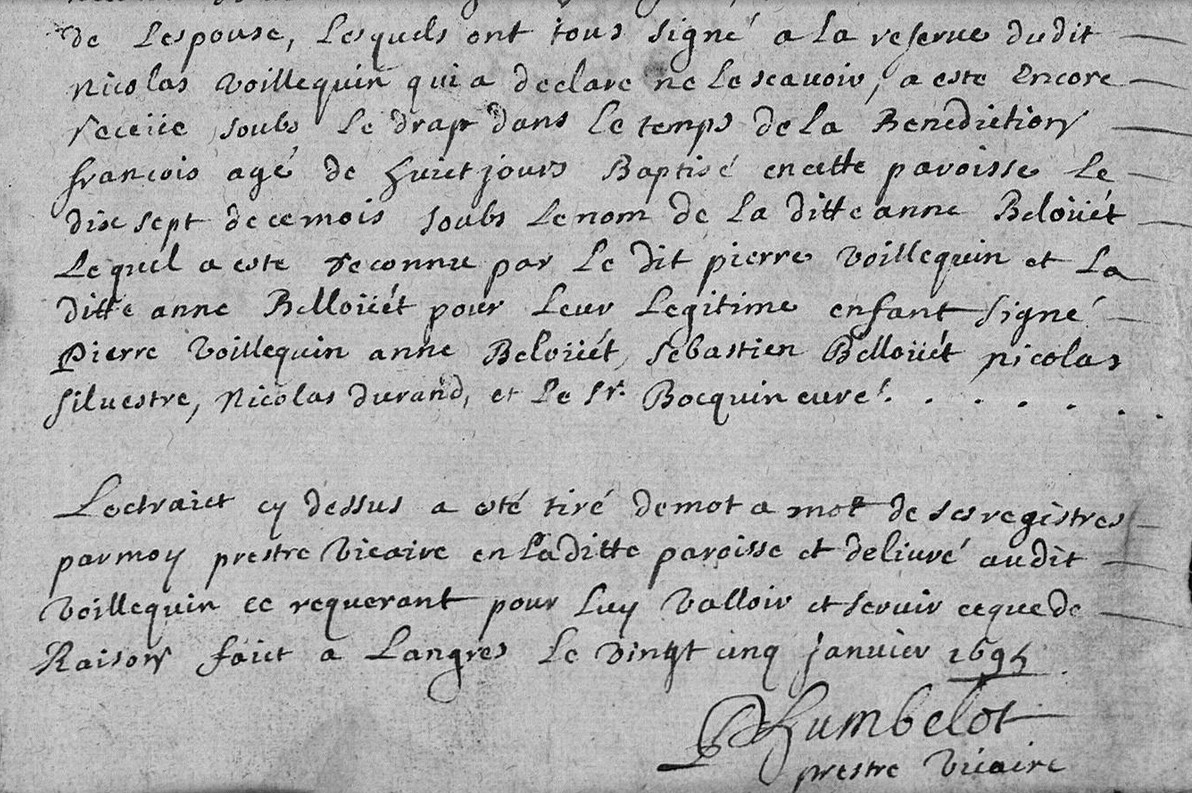 de Lespouse, Lesquels ont tous signé a La reserve dudit
nicolas Voillequin qui a declare ne Le scavoir, a este Encore
receüe soubs Le drap dans Le temps de La Benediction
françois agé de huict jours Baptisé en cette paroisse Le
dix sept de ce mois soubs Le nom de La ditte anne Beloüét
Lequel a este reconnu par Le dit pierre Voillequin et La
ditte anne Belloüét pour Leur Legitime enfant signé
Pierre Voillequin anne Beloüét, Sebastien Belloüét nicolas
silvestre, Nicolas Durand, et Le Sr. Bocquin curé . . . . . . .
Lextraict cy dessus a esté tiré de mot a mot de ses registres
par moy prestre Vicaire en Laditte paroisse et delivré audit
Voillequin ce requerant pour Luy Valloir et servir ce que de
Raison faict a Langres Le vingt cinq janvier 1695
P Humbelot
prestre Vicaire